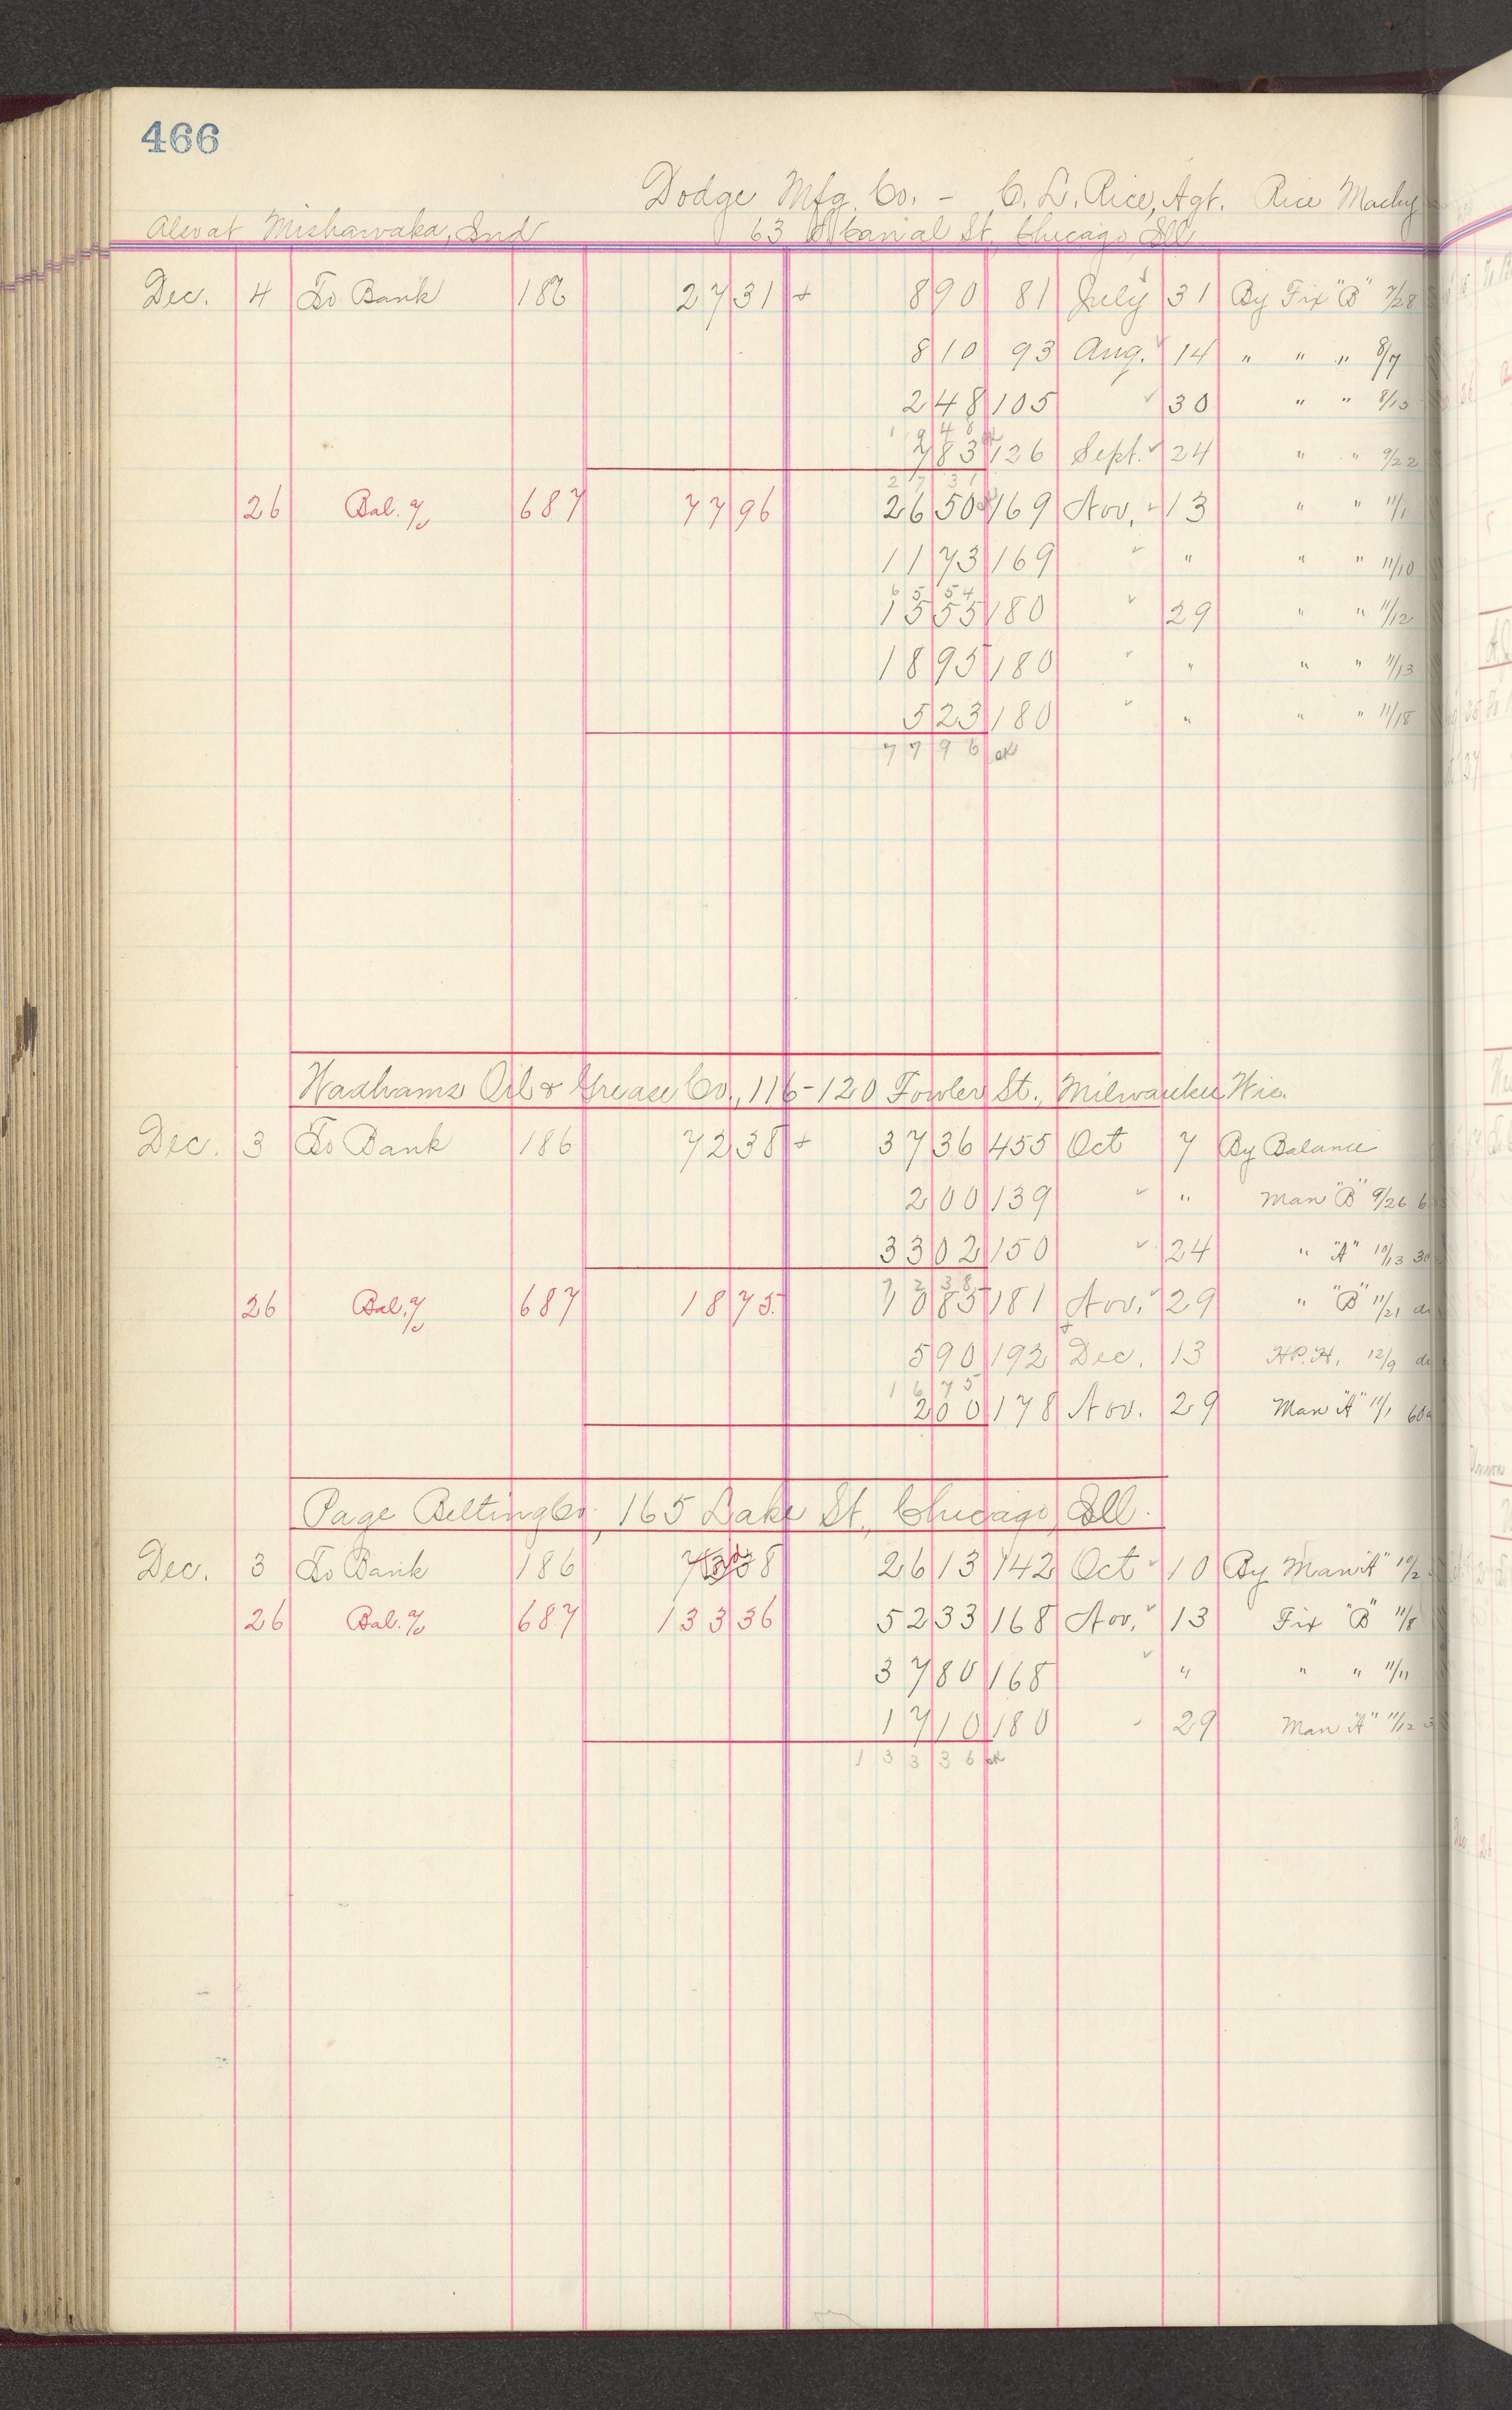 466
Dodge Mfg. Co. - C. L. Rice, Agt. Rice Machy
Also at Mishawaka, Ind 63 Canal St, Chicago, Ill
Dec. 4 To Bank 186 27 31 + 8 90 81 July 31 By Fix "B" 7/28
8 10 93 Aug. 14 " " " 8/7
2 48 105 30 " " 8/13
19 48
7 83 126 Sept. 24 " " 9/22
27 31
26 Bal. 687 77 96 26 50 169 Nov. 13 " " 11/1
11 73 169 " " " 11/10
65 54
15 55 180 29 " " 11/12
18 95 180 " " " 11/13
5 23 180 " " " 11/18
77 96 ok
Wadhams Oil & Grease Co., 116-120 Fowler St., Milwaukee Wis.
Dec. 3 To Bank 186 72 38 + 37 36 455 Oct 7 By Balance
2 00 139 " Man "B" 9/26
33 02 150 24 " "A" 10/13
72 38
26 Bal. 687 18 75 10 85 181 Nov. 29 " "B" 11/21
5 90 192 Dec. 13 H.P.H. 12/9
16 75
2 00 178 Nov. 29 Man "A" 11/1 60
Page Belting Co., 165 Lake St., Chicago, Ill.
Dec. 3 To Bank 186 26 13 142 Oct 10 By Man "A" 10/2
26 Bal. 687 133 36 52 33 168 Nov. 13 Fix "B" 11/8
37 80 168 " " " 11/11
17 10 180 29 Man "A" 11/12
133 36 ok